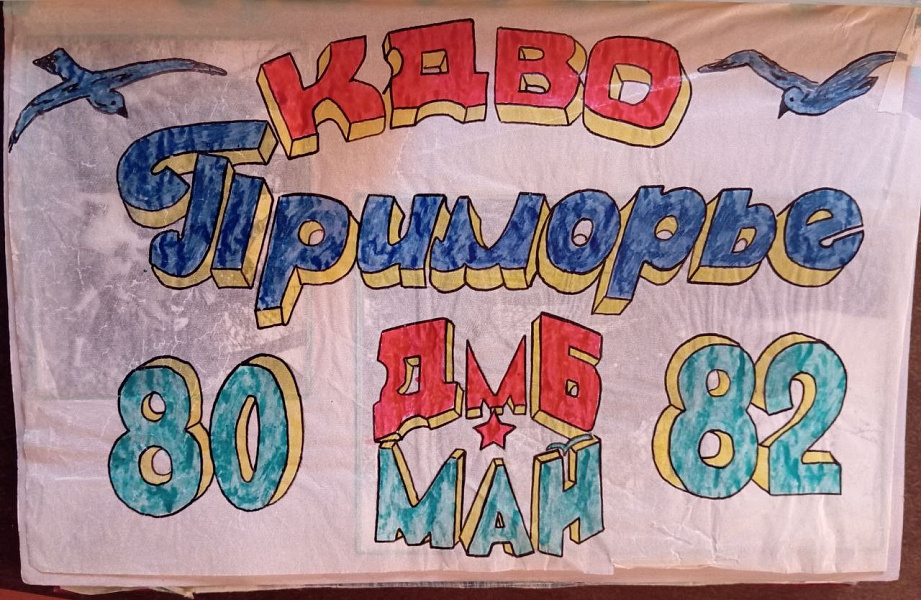 КДВО
Приморье
80 ДМБ 82
МАЙ